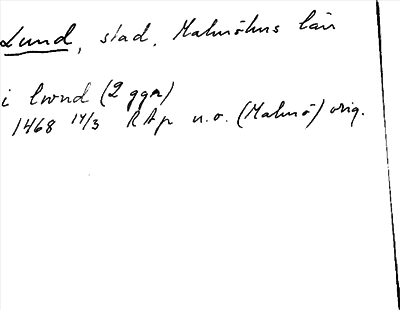 Lund, stad, Malmöhus län
i lwnd (2 ggr)
1468 14/3 RAp u.o. (Malmö) orig.